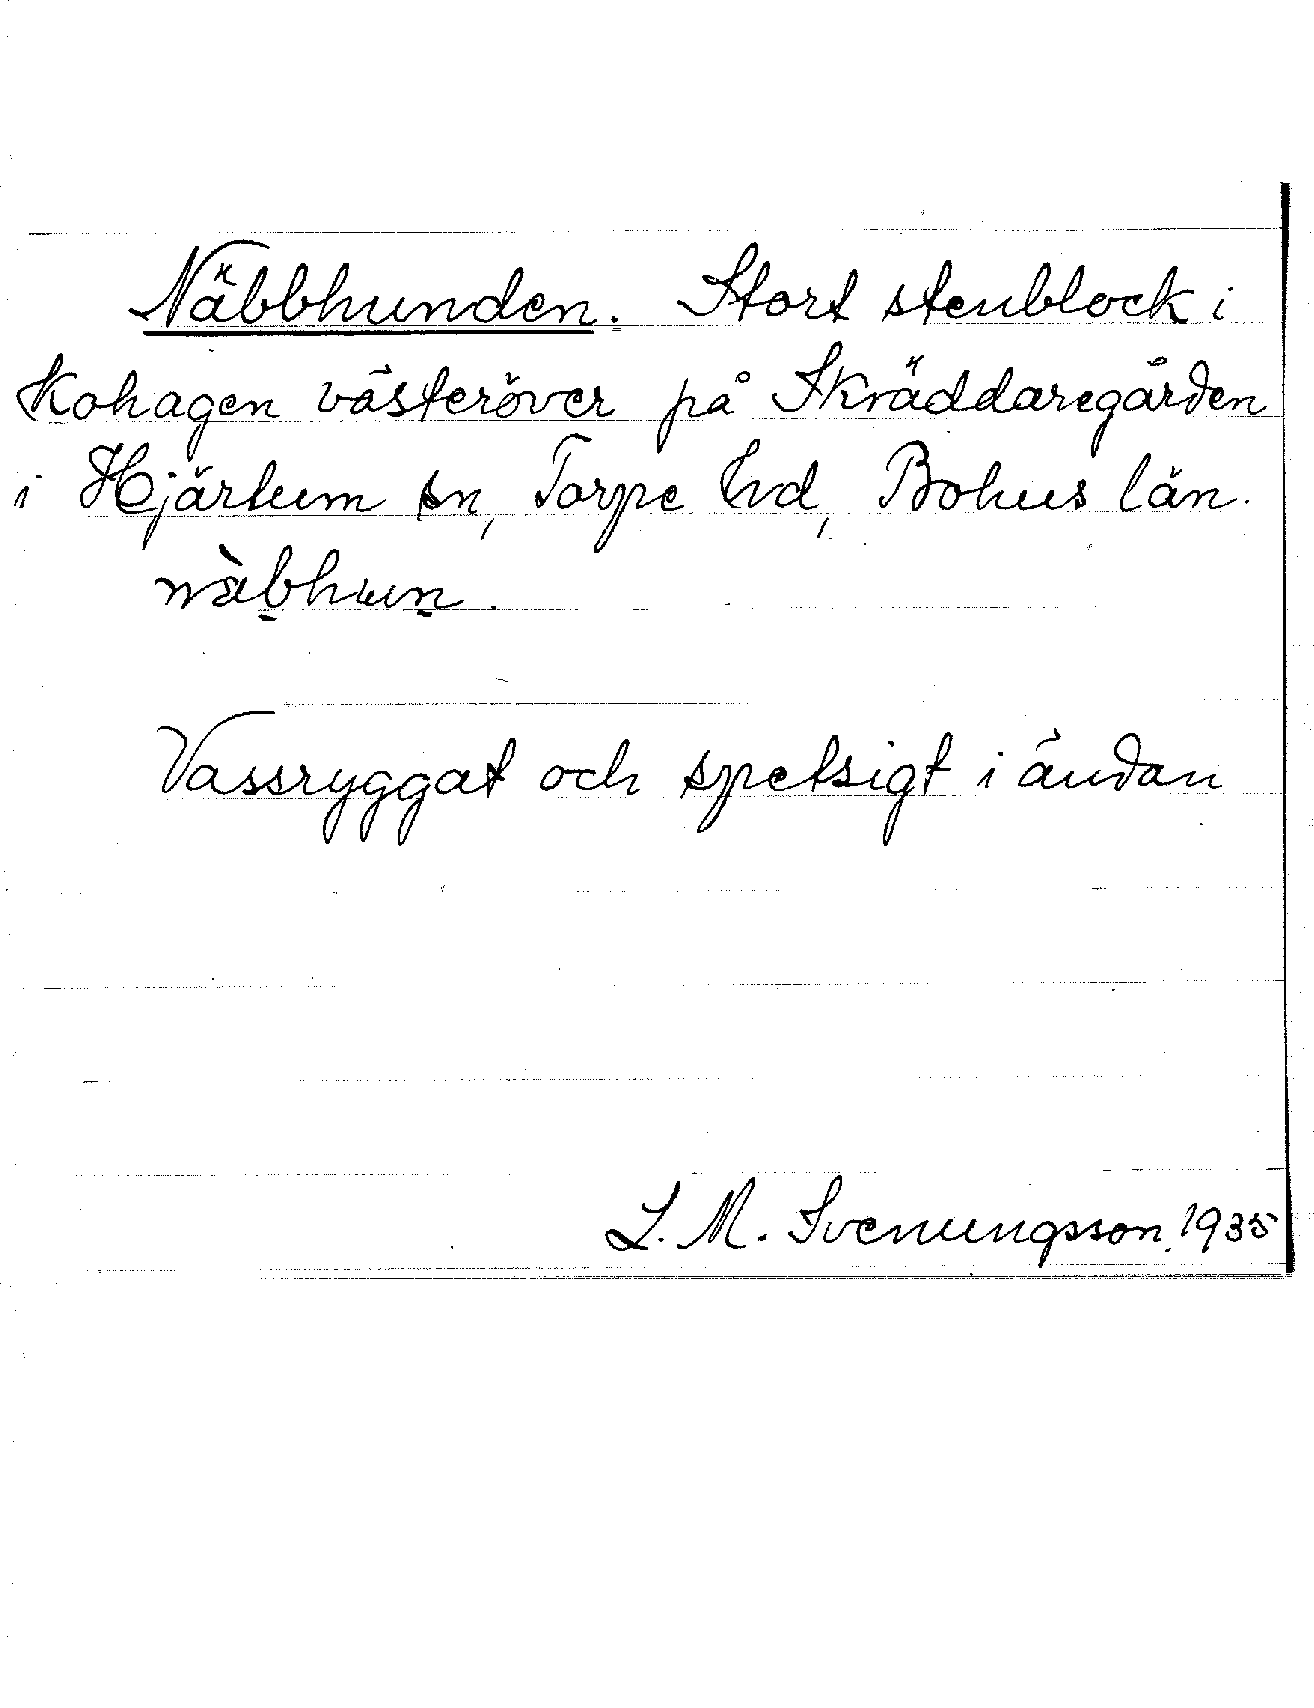 Näbbhunden. Stort stenblock i
Kohagen västeröver på Skräddaregården
i Hjärtum sn, Torpe hd, Bohus län.
näbhun.
Vassryggat och spetsigt i ändan
L. M. Svenungsson 1935